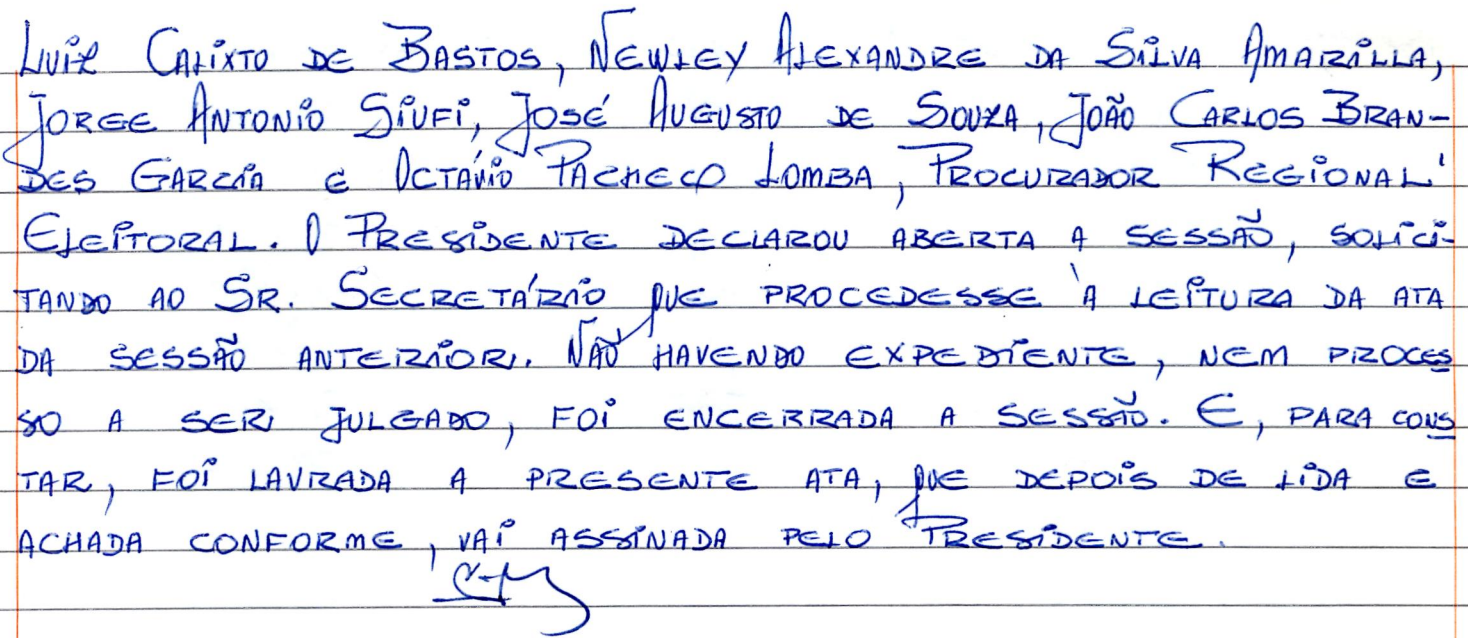 LUIZ CALIXTO DE BASTOS, NEWLEY ALEXANDRE DA SILVA AMARILLA,
JORGE ANTONIO SIUFI, JOSÉ AUGUSTO DE SOUZA, JOÃO CARLOS BRAN-
DES GARCIA E OCTÁVIO PACHECO LOMBA, PROCURADOR REGIONAL
ELEITORAL. O PRESIDENTE DECLAROU ABERTA A SESSÃO, SOLICI-
TANDO AO SR. SECRETÁRIO QUE PROCEDESSE À LEITURA DA ATA
DA SESSÃO ANTERIOR. NÃO HAVENDO EXPEDIENTE, NEM PROCES
SO A SER JULGADO, FOI ENCERRADA A SESSÃO. E, PARA CONS
TAR, FOI LAVRADA A PRESENTE ATA, QUE DEPOIS DE LIDA E
ACHADA CONFORME, VAI ASSINADA PELO PRESIDENTE.